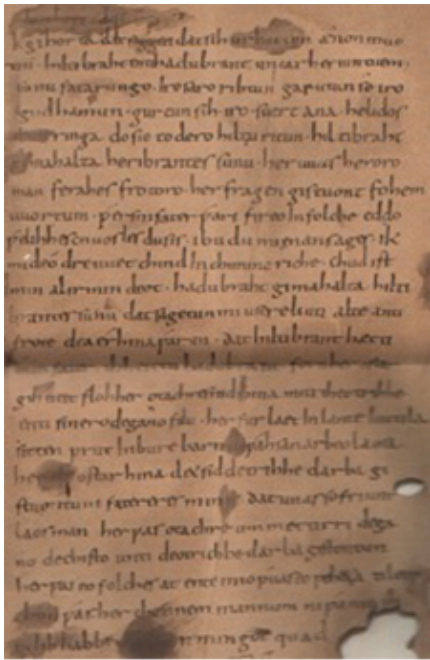 gihorta dat seggen dat sih urhettun ænon muo
tin · hiltibraht enti hadubrant untar heriun tuem ·
sunu fatarungo · iro saro rihtun garutun se iro
gudhamun · gurtun sih · iro · suert ana · helidos
ringa do sie to dero hiltu ritun · hiltibraht
gimahalta heribrantes sunu · her uuas heroro
man ferahes frotoro · her fragen gistuont fohem
uuortum · ƿer sin fater ƿari fireo In folche eddo
ƿelihhes cnuosles du sis · ibu du mi enan sages · ik
mi de odre uuet chind In chunincriche · chud ist
min al irmin deot · hadubraht gimahalta hilti
brantes sunu dat sagetun mi usere liuti alte anti
frote dea erhina ƿarun · dat hiltibrant hætti
fater · ih heittu hadubrant · forn her ostar
gihueit floh her otachres nid hina miti theotrihhe
enti sinero degano filu · her furlaet In lante luttila
sitten prut In bure barn unƿahsan arbeo laosa
ostar hina det sid detrihhe darba gi
stuontun fatereres mines · dat uuas so friunt
laos man her ƿas otachre ummettirri dega
no dechisto unti deotrichhe darba gistontun
her ƿas eo folches at ente imo ƿuas eo feheta ti leop
chud ƿas her chonnem mannum ni ƿaniu
lib habbe irmingot quad